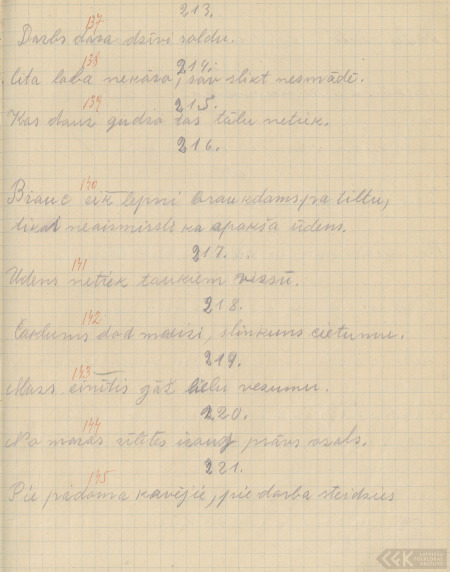 213.
137
Darbs dara dzīvi saldu.
138
214.
Cita laba nekāro, sav slikt nesmādē.
139
215.
Kas daudz gudro tas tālu netiek.
216.
140
Brauc cik lepni braukdams pa tiltu,
tikai neaizmirsti ka apakšā ūdens.
217.
141
Udens netiek taukiem virsū.
218.
142
Čaklums dod maizi, slinkums cietumu.
219.
143
Mazs cinītis gāž lielu vezumu.
220.
144
No mazas zīlītes izaug prāvs ozols.
221.
145
Pie padoma kavējies, pie darba steidzies